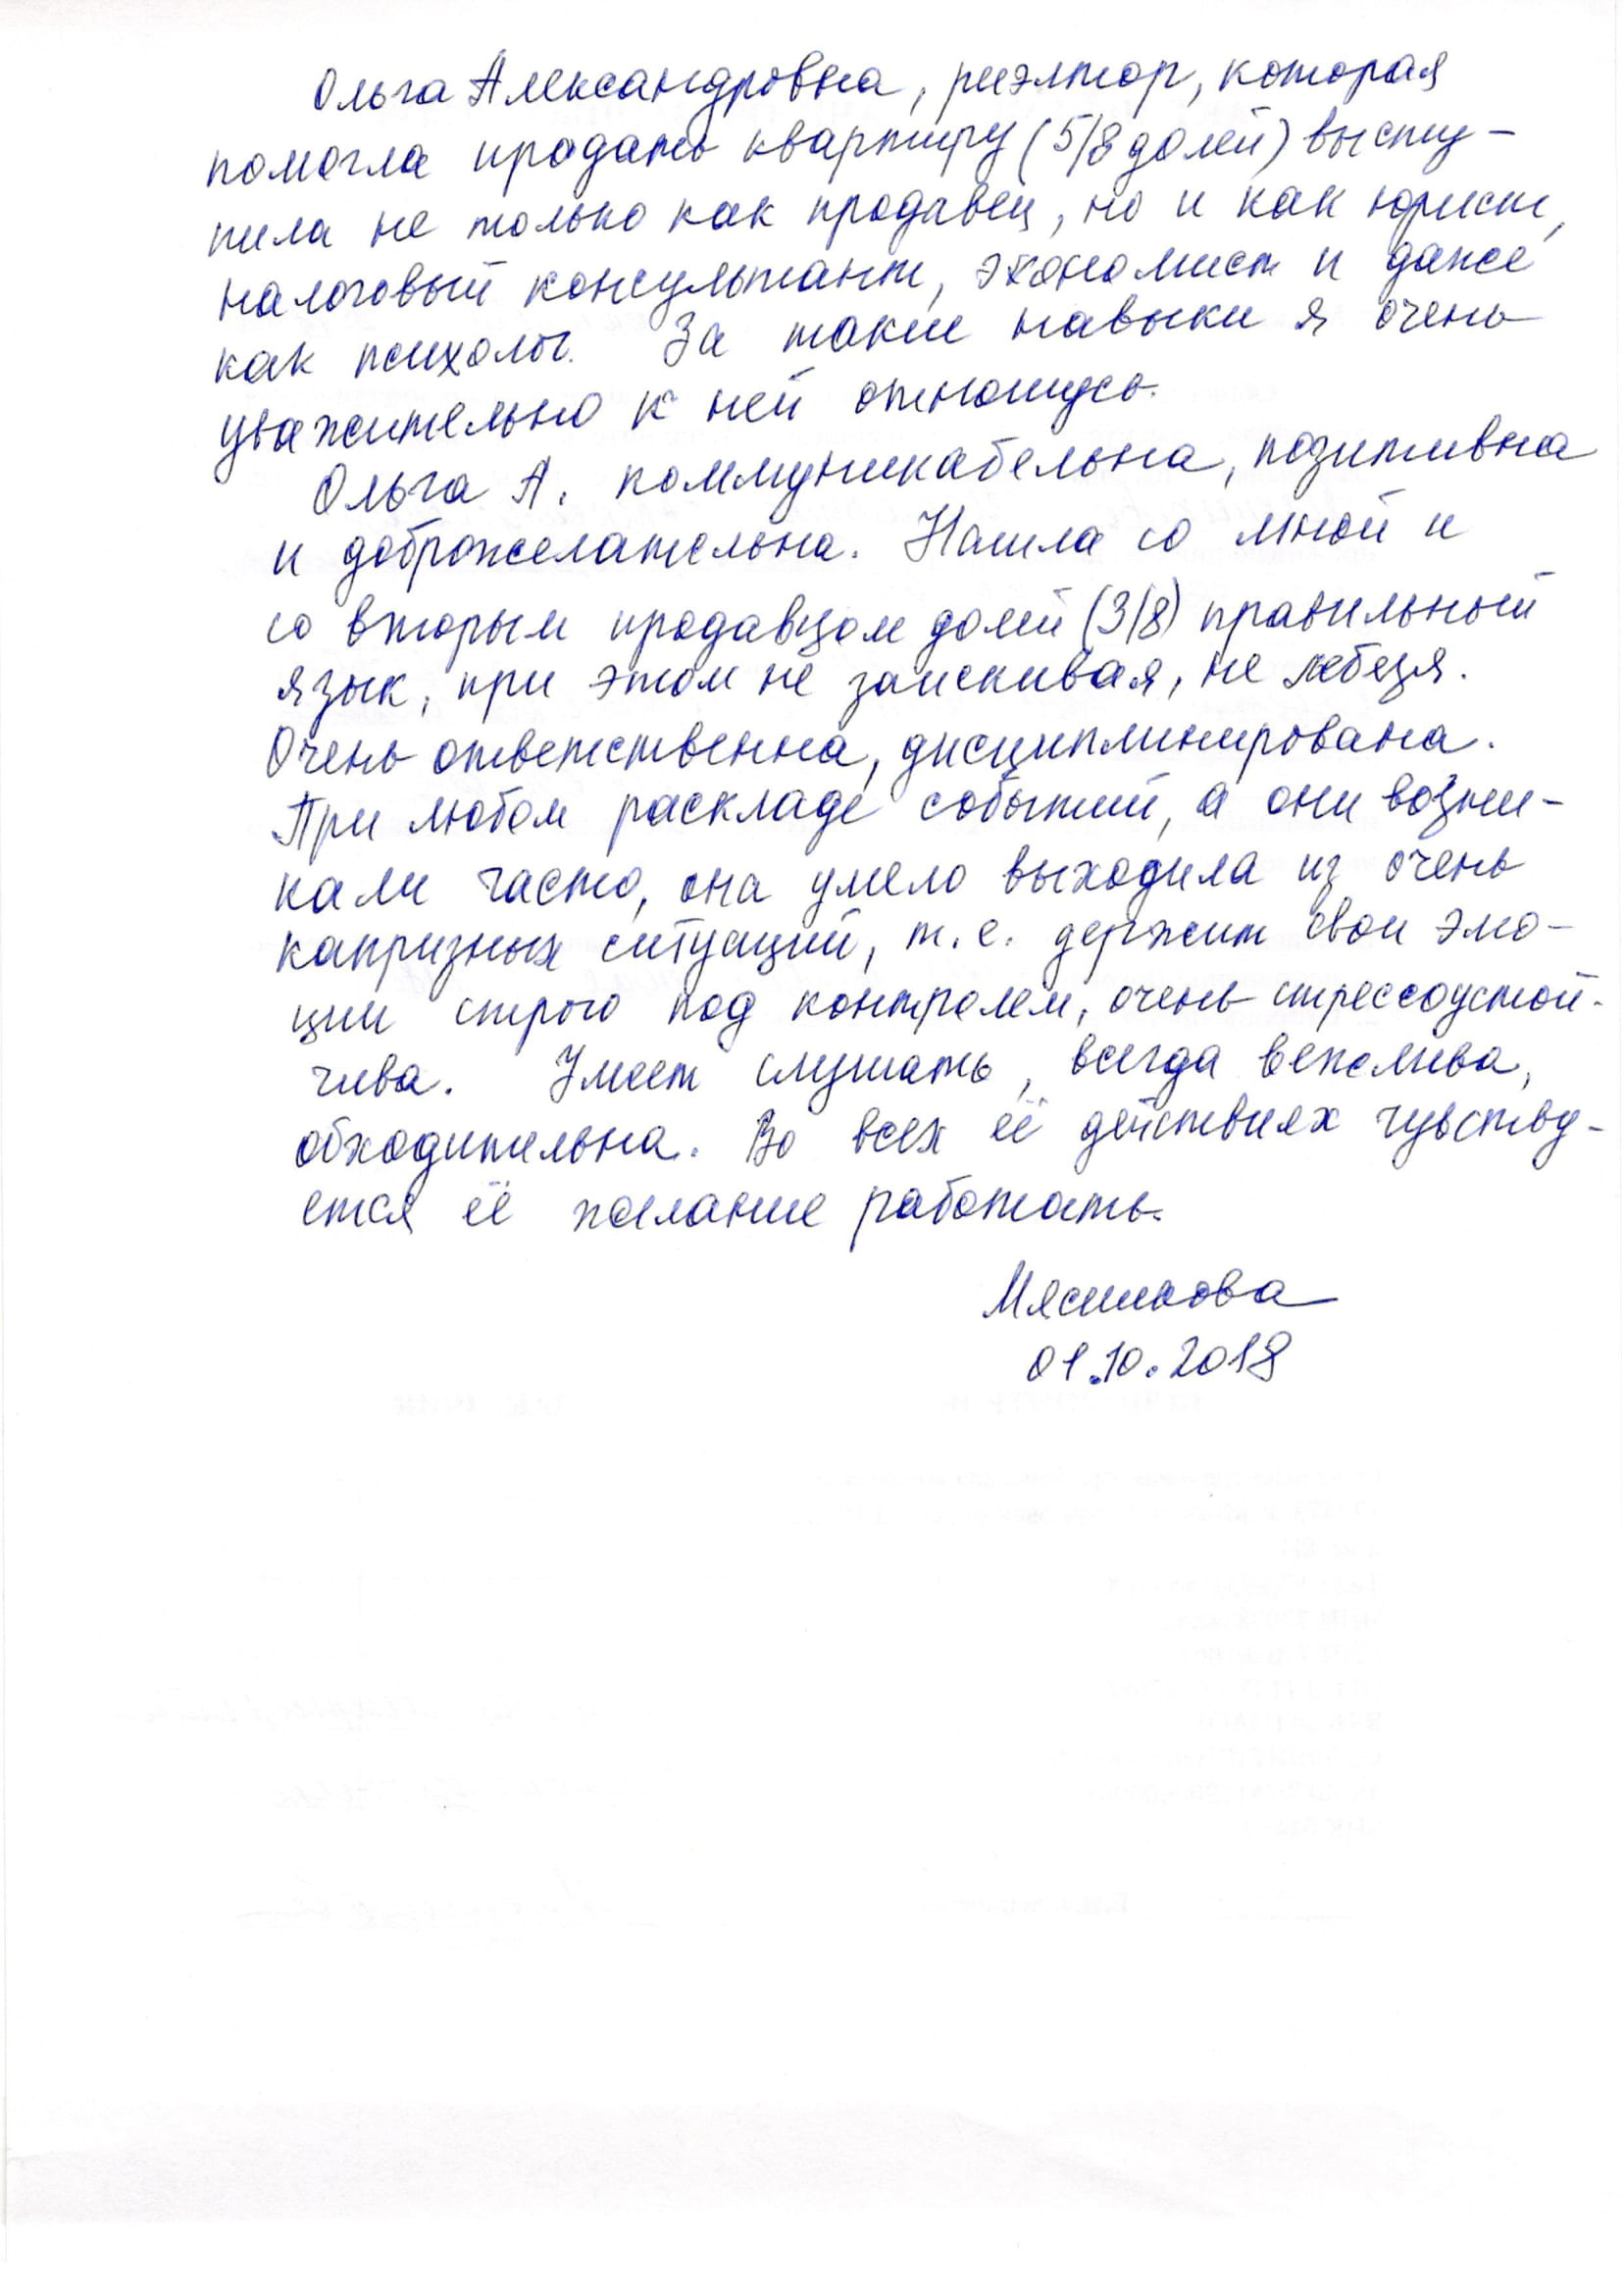 Ольга Александровна, риэлтор, которая
помогла продать квартиру (5/8 долей) высту-
пила не только как продавец, но и как юрист,
налоговый консультант, экономист и даже
как психолог. За такие навыки я очень
уважительно к ней отношусь.
Ольга А. коммуникабельна, позитивна
и доброжелательна. Нашла со мной и
со вторым продавцом долей (3/8) правильный
язык, при этом не заискивая, не лебезя.
Очень ответственна, дисциплинирована.
При любом раскладе событий, а они возни-
кали часто, она умело выходила из очень
капризных ситуаций, т.е. держит свои эмо-
ции строго под контролем, очень стрессоустой-
чива. Умеет слушать, всегда вежлива,
обходительна. Во всех её действиях чувству-
ется её желание работать.
01.10.2018